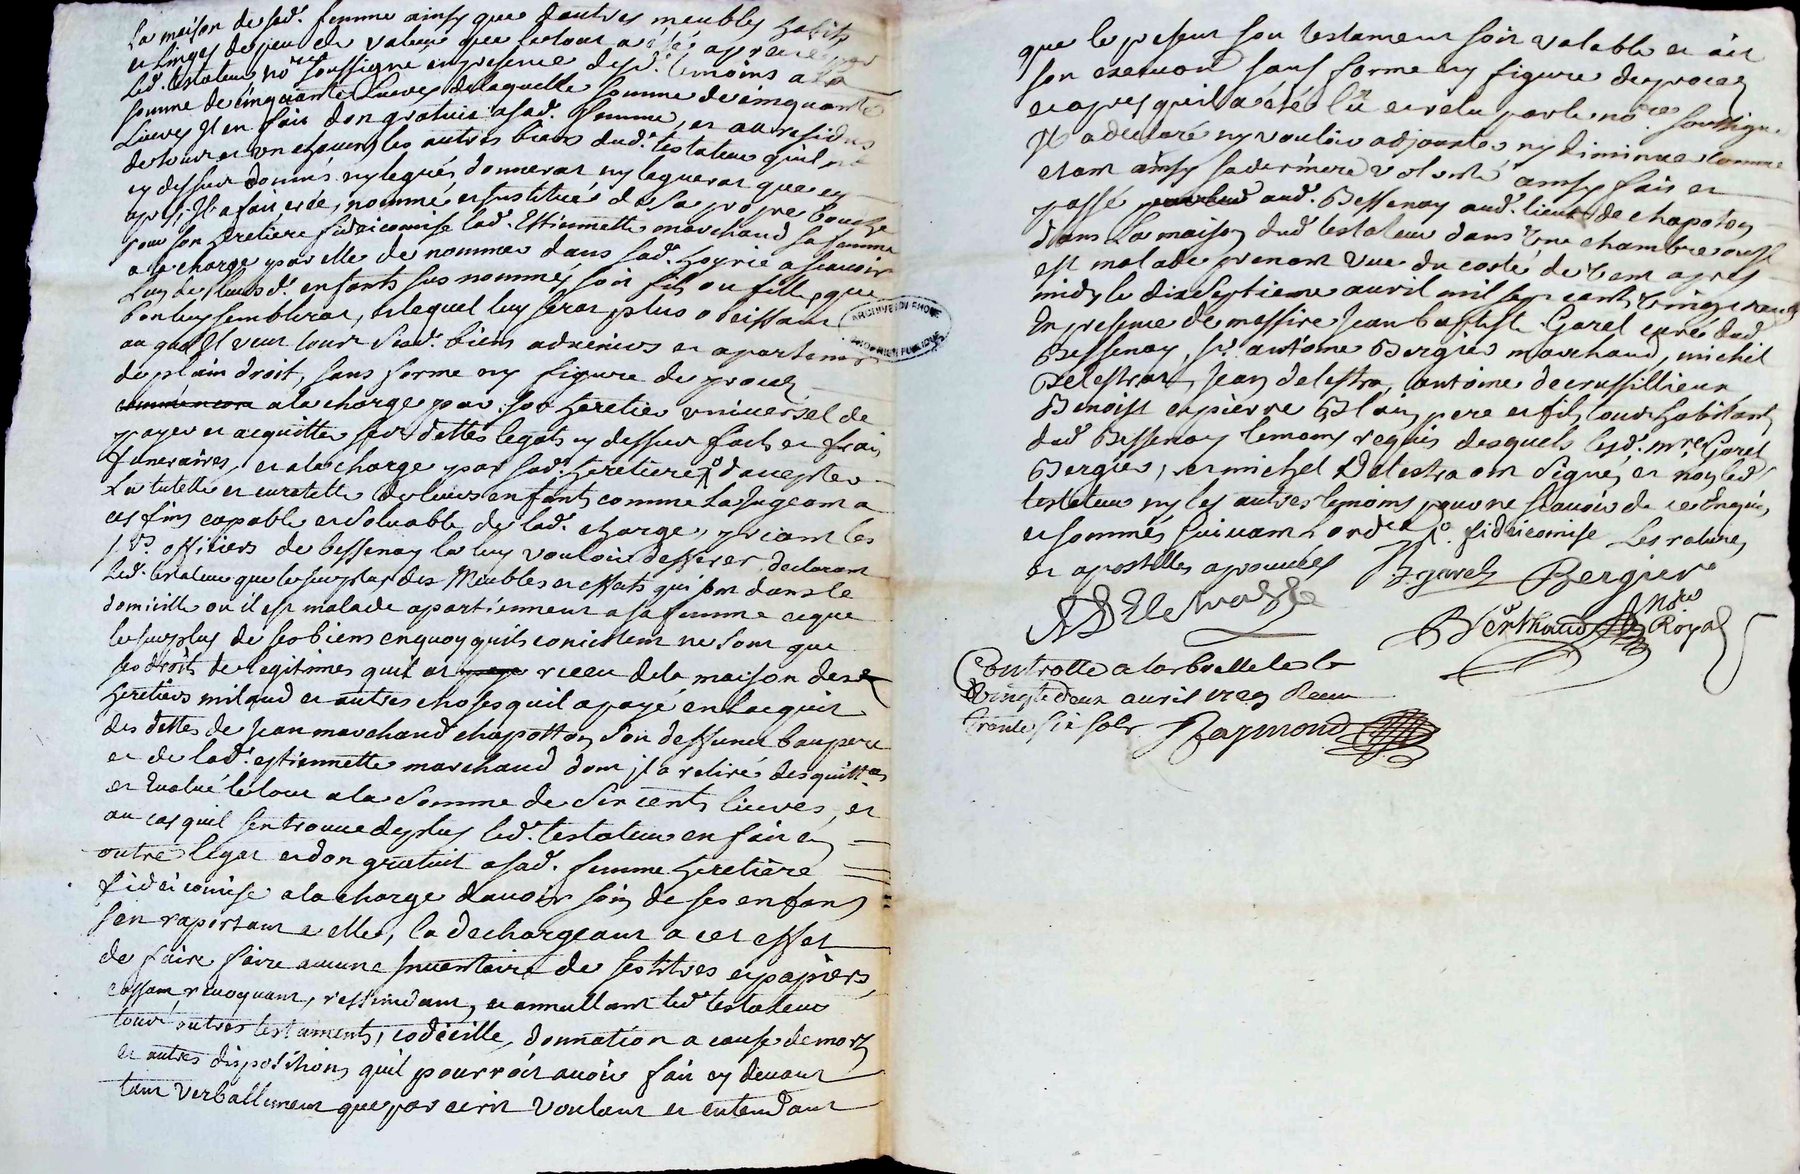 La maison de sad. femme ainsy que dautres meubles habits
et linges de peu de valeur que le tout a été aprecié par
led. testateur nore soussigné en presence desd. temoins a la
somme de cinquante Livres de laquelle somme de cinquante
Livres Il en fait don gratuit a sad. femme, et au residus
de tout et un chacuns les autres biens dud. testateur quil n'a
cy dessus donnés ny legués donnerat ny leguerat que cy
apres, Il a fait, créé, nommé et institué de sa propre bouche
pour son heretiere fideicomise lad. Estiennette marchand sa femme
a la charge par elle de nommer dans sad. hoyrie a scavoir
Lun de leursd. enfants sus nommés soit fils ou fille que
bon luy semblerat, et lequel luy serat plus obeissant
au quel Il veut tout sesd. biens advenirs et apartenir
de plain droit, sans forme ny figure de procez
a la charge par son heretier universel de
payer et acquitter ses dettes legats cy dessus faits et frais
funeraires, et a la charge par sad. heretiere daccepter
La tutelle et curatelle de leurs enfants comme La Jugeant a
ces fins capable et solvable de lad. charge, priant les
srs officiers de bessenay la luy vouloir defferer declarant
led. testateur que le surplus des Meubles et effets qui sont dans le
domicille ou il est malade apartiennent a sa femme et que
le surplus de ses biens en quoy quils concistent ne sont que
ses droits de legitimes quil at receu de la maison de ses
heretiers milaud et autres choses quil a payé en Lacquit
des dettes de Jean marchand chapotton son deffunct beaupere
et de lad. estiennette marchand dont il a retiré des quittces
et Evalué le tout a la somme de Six cents livres, et
au cas quil sen trouve de plus led. testateur en fait en
outre legat et don gratuit a sad. femme heretière
fideicomise a la charge davoir soin de ses enfans
sen raportant a elle, la dechargeant a cet effet
de faire faire aucune Inventaire de ses titres et papiers,
cassant, revoquant, ressindant, et annullant led. testateur
tout autres testaments, codicille, donnation a cause de mort
et autres dispositions quil pourroit avoir fait cy devant
tant verballement que par ecrit voulant et entendant
ARCHIVES DU RHONE
PROPRIETE PUBLIQUE
que le present son testament soit valable et ait
son execution sans forme ny figure de procez
et apres quil a été lu et relu par le nore soussigné
Il a declaré ny vouloir adjouster ny diminuer comme
etant ainsy sa derniere volonté ainsy fait et
passé aud. Bessenay aud. lieu de chapoton
dans La maison dud. testateur dans Une chambre ou Il
est malade prenant vue du costé de vent apres
midy le dixseptieme avril mil sept cents vingt neuf
En presence de messire Jean baptiste Garel curé dud.
Bessenay, sr. antoine Bergier marchand, michel
Delestrat, Jean delestra, antoine decrussillieux
Benoist et pierre Blain pere et fils tous habitants
dud. Bessenay temoins requis desquels lesd. mre Garel
Bergier, et michel Delestra ont signé, et non led.
testateur ny les autres temoins pour ne scavoir de ce Enquis
et sommés suivant ordce fideicomise Les ratures
et apostilles aprouvées
B. garel Bergier
M Delestrast
Berthaud Nore Royal
Controllé a Larbrelle le
vingt deux avril 1729 Receu
trente six sols Raymond